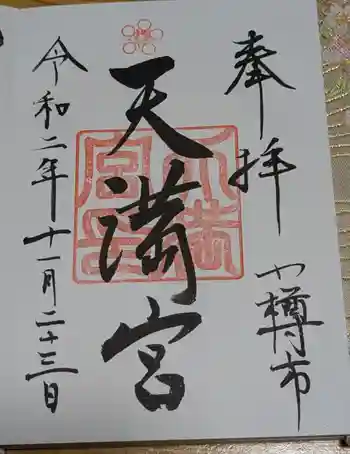 奉拝
小樽市
天満宮
令和二年十一月二十三日